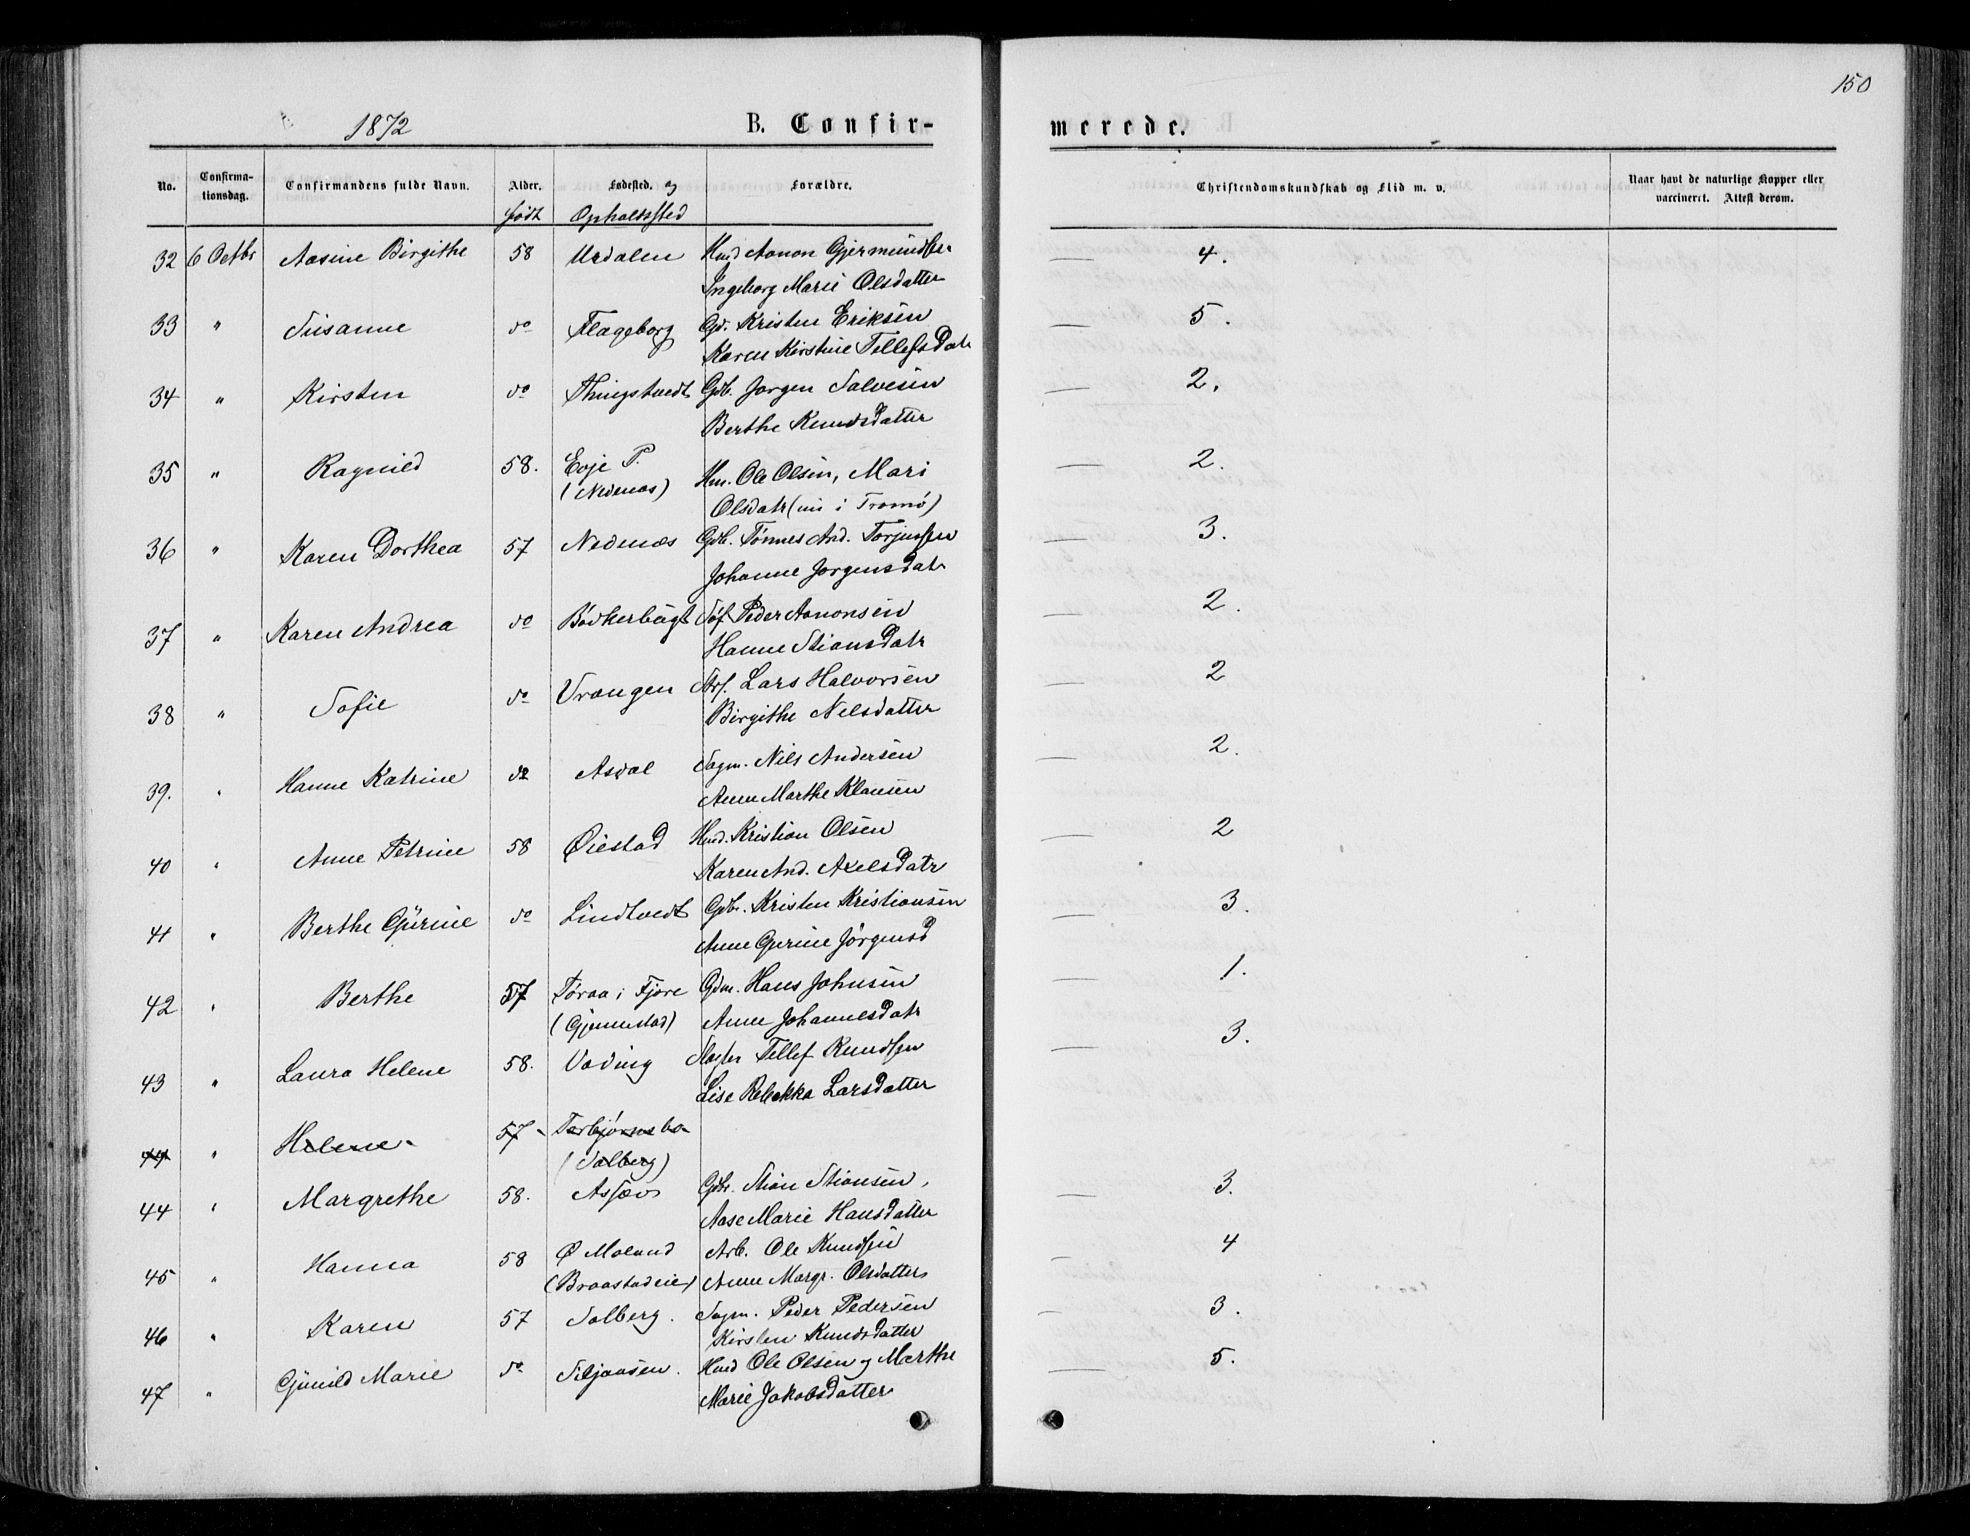 150
1872 B. Confirmerede.
No. Confirmationsdag. Confirmandens fulde Navn. Alder. Fødested. og Forældre. Christendomskundskab og Flid m. v. Naar havt de naturlige Kopper eller vaccineret. Attest derom.
født Opholdssted
32 6 Octbr Aasine Birgithe 58 Urdalen Hmd Aanon Gjermundsen — 4.
Ingeborg Marie Olsdatter
33 " Susanne do Flageborg Gd. Kristen Eriksen — 5.
Karen Kirstine Tellefsdatr
34 " Kirsten do Thingstvedt Gdb. Jørgen Salvesen — 2.
Berthe Knudsdatter
35 " Ragnild 58. Evje P. Hm. Ole Olsen, Mari — 2.
(Nedenæs) Olsdatr (nu i Tromø)
36 " Karen Dorthea 57 Nedenæs Gdb. Tønnes And. Torjussen — 3.
Johanne Jørgensdatr
37 " Karen Andrea do Bødkerbugt Søf Peder Aanonsen — 2.
Hanne Stiansdatr
38 " Sofie do Vrængen Arf. Lars Halvorsen — 2
Birgithe Nilsdatter
39. " Hanne Katrine do Asdal Sagm. Nils Andersen — 2.
Anne Marthe Klausen
40 " Anne Petrine 58 Øiestad Hmd. Kristian Olsen — 2
Karen And. Axelsdatr
41 " Berthe Gurine do Lindtvedt Gdbr. Kristen Kristiansen — 3.
Anne Gurine Jørgensd
42 " Berthe 57 Toraa i Fjære Gdm. Hans Johnsen — 1.
(Gjennestad) Anne Johannesdatr
43 " Laura Helene 58. Vading Tellef Knudsen — 3.
Lise Rebekka Larsdatter
44 " Helene 57 Torbjørnsbo
(Solberg)
44 " Margrethe 58. Assæv Gdbr. Stian Stiansen, — 3.
Aase Marie Hansdatter
45 " Hanna 58 Ø Moland Arb. Ole Knudsen — 4
(Braastadeie) Anne Margr. Olsdatter
46 " Karen 57 Solberg. Sagm. Peder Pedersen — 3.
Kirsten Knudsdatter
47 " Gunild Marie do Siljaasen. Hmd Ole Olsen og Marthe — 5.
Marie Jakobsdatter